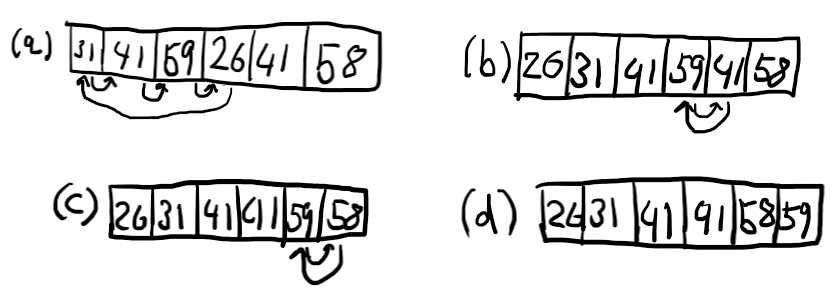 (a) 31 41 59 26 41 58
(b) 26 31 41 59 41 58
(c) 26 31 41 41 59 58
(d) 26 31 41 41 58 59